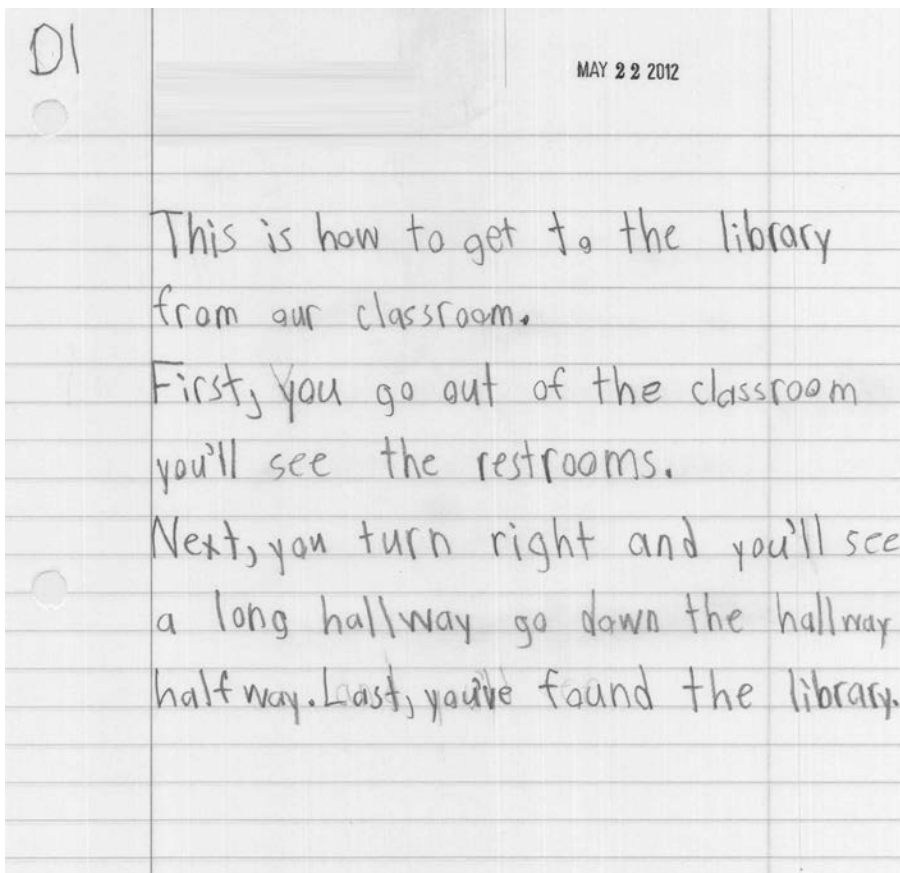 D1
MAY 22 2012
This is how to get to the library
from our classroom.
First, you go out of the classroom
you'll see the restrooms.
Next, you turn right and you'll see
a long hallway go down the hallway
halfway. Last, you've found the library.